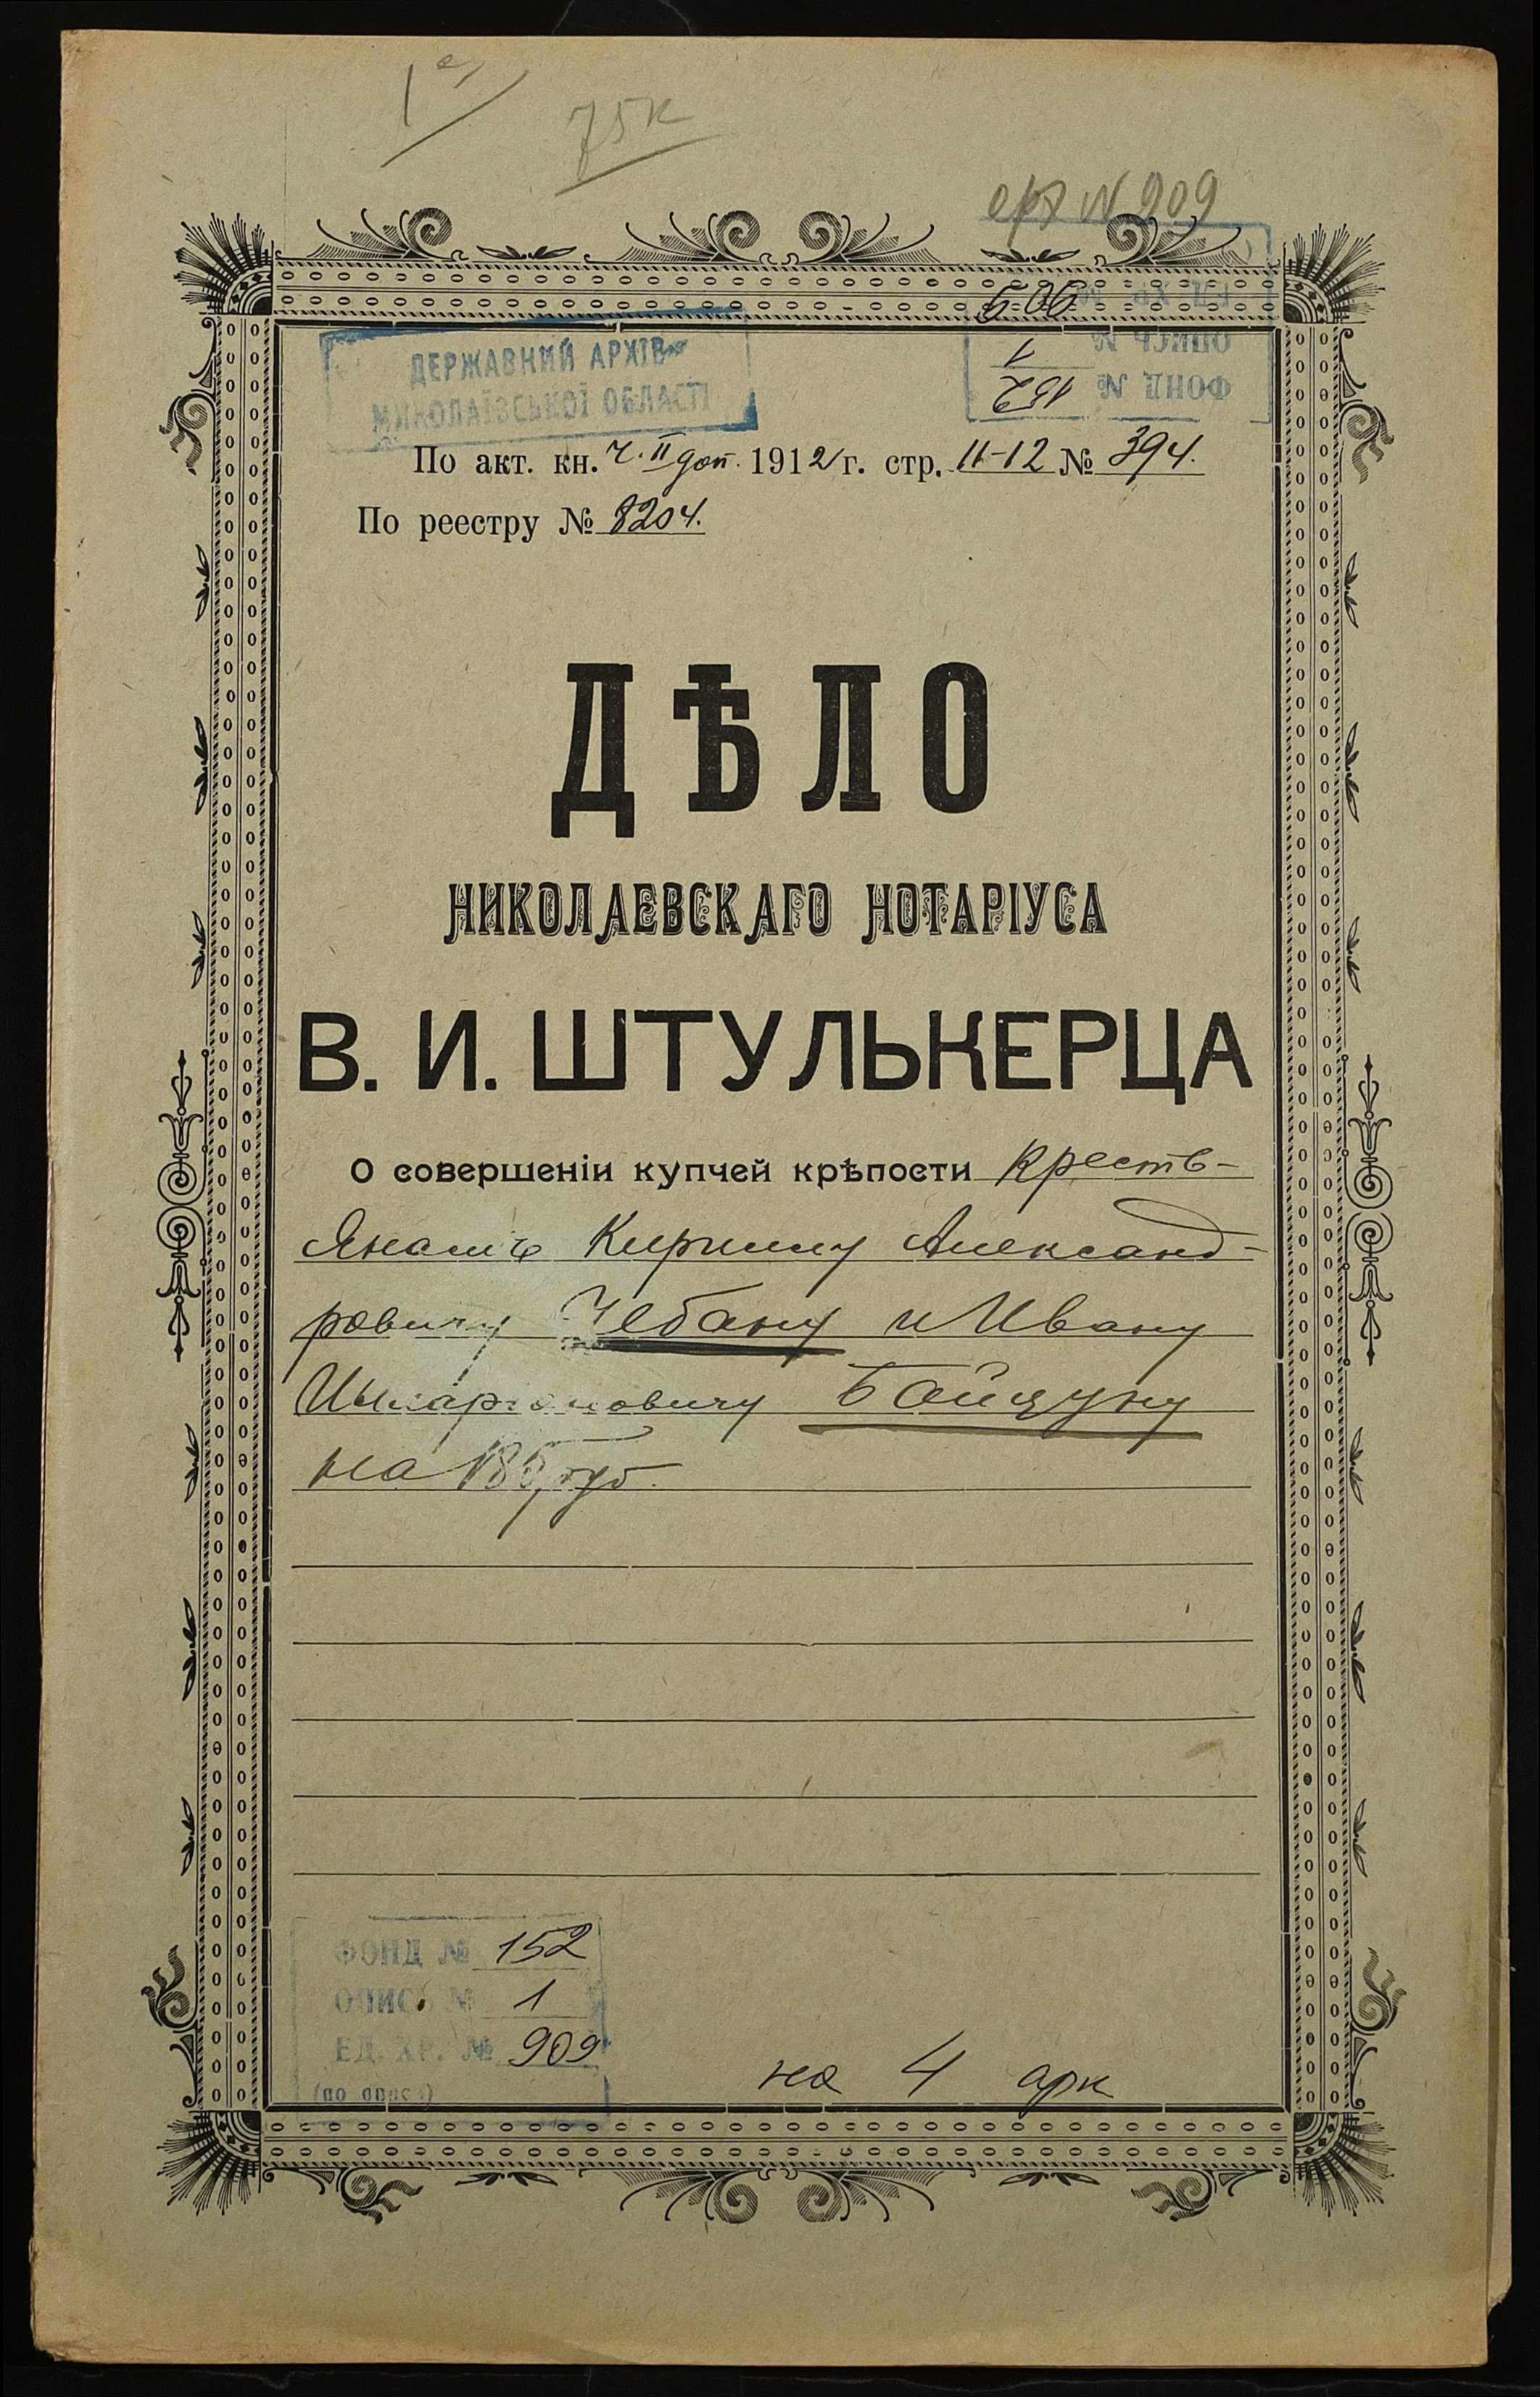 75к
N 909
ФОНД № 152
ОПИСЬ № 1
909
ДЕРЖАВНИЙ АРХІВ
МИКОЛАЇВСЬКОЇ ОБЛАСТІ
По акт. кн. ч. II доп. 1912 г. стр. 11-12 № 394.
По реестру № 8204.
ДѢЛО
НИКОЛАЕВСКАГО НОТАРІУСА
В. И. ШТУЛЬКЕРЦА
О совершеніи купчей крѣпости Кресть-
янамъ Кириллу Александ-
ровичу Чебану и Ивану
Байцуну
на руб.
ФОНД № 152
ОПИСЬ № 1
ЕД. ХР. № 909
(по описи)
на 4 арк